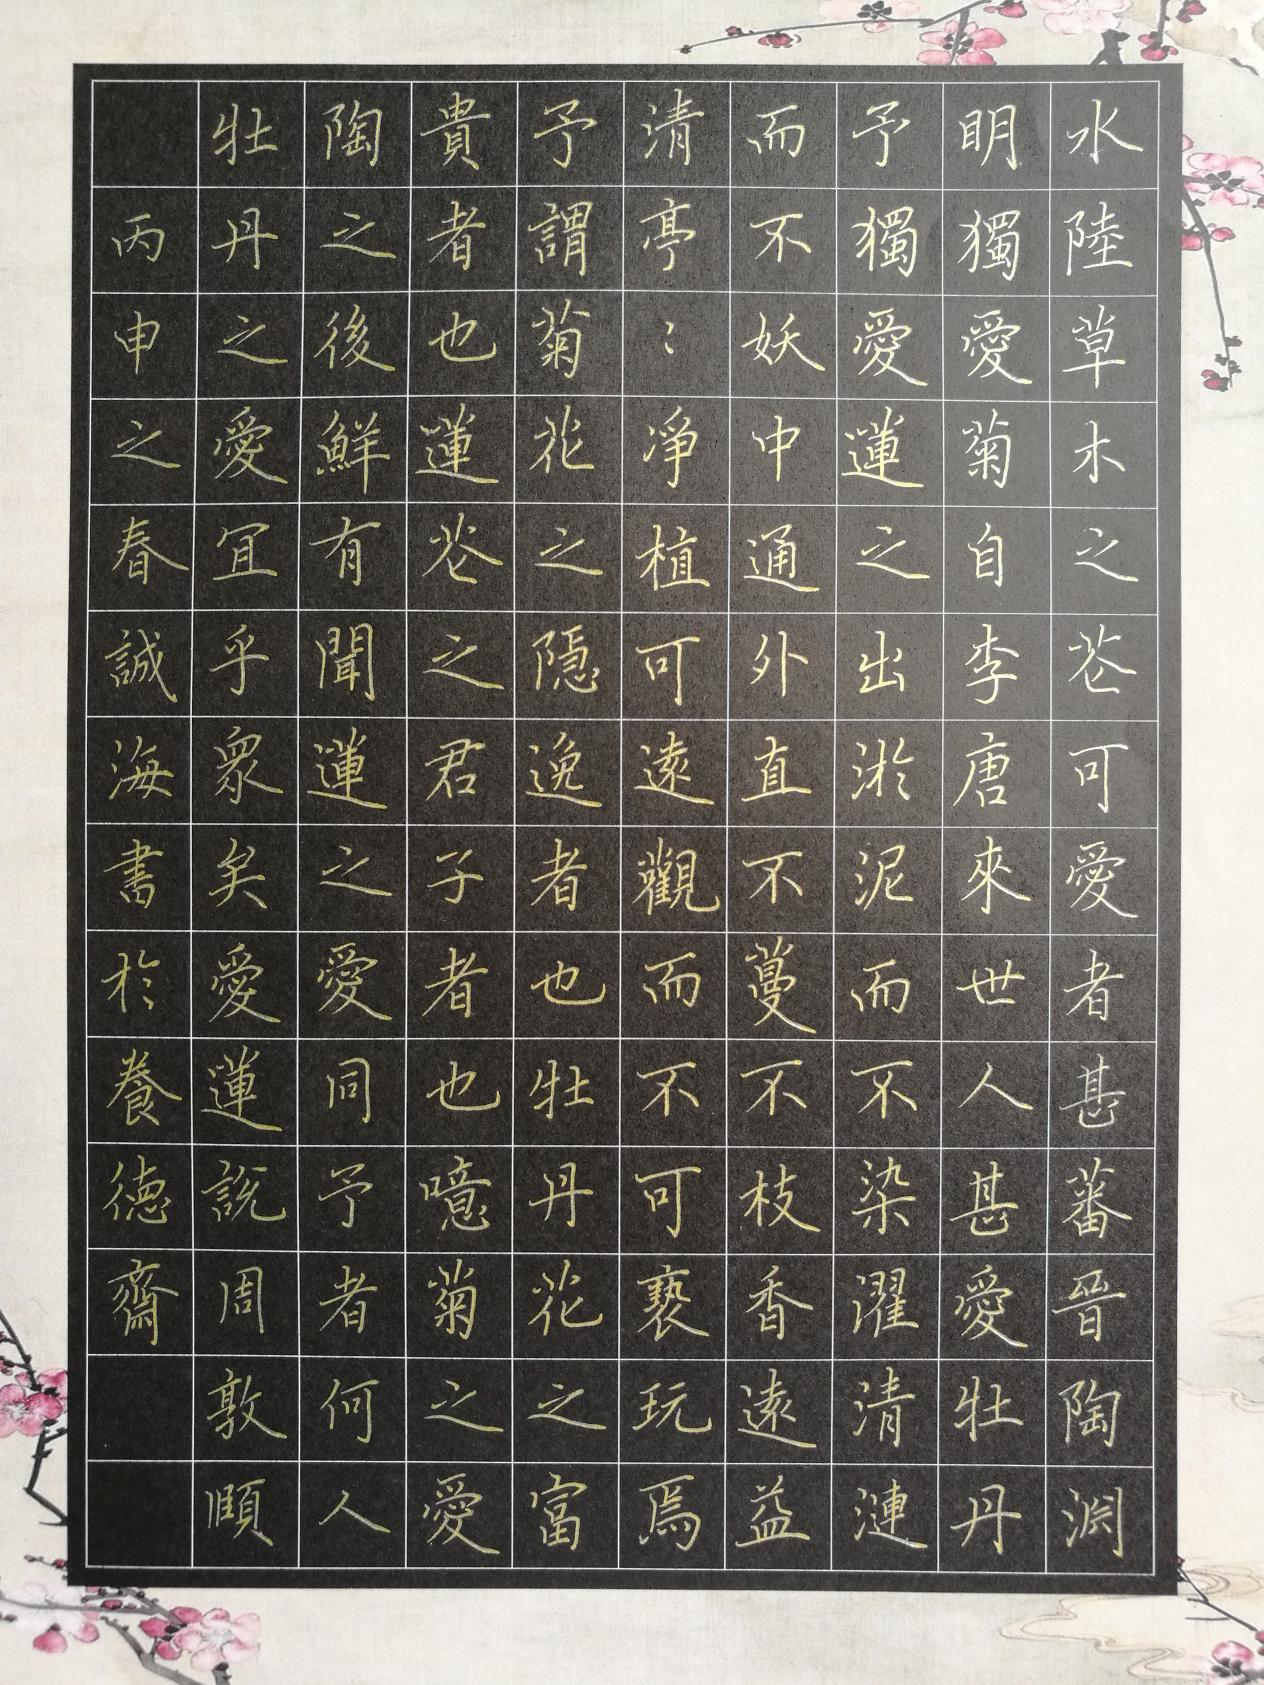 水陸草木之花可愛者甚蕃晉陶淵
明獨愛菊自李唐來世人甚愛牡丹
予獨愛蓮之出淤泥而不染濯清漣
而不妖中通外直不蔓不枝香遠益
清亭〻淨植可遠觀而不可褻玩焉
予謂菊花之隱逸者也牡丹花之富
貴者也蓮花之君子者也噫菊之愛
陶之後鮮有聞蓮之愛同予者何人
牡丹之愛宜乎眾矣愛蓮說周敦頤
丙申之春誠海書於養德齋